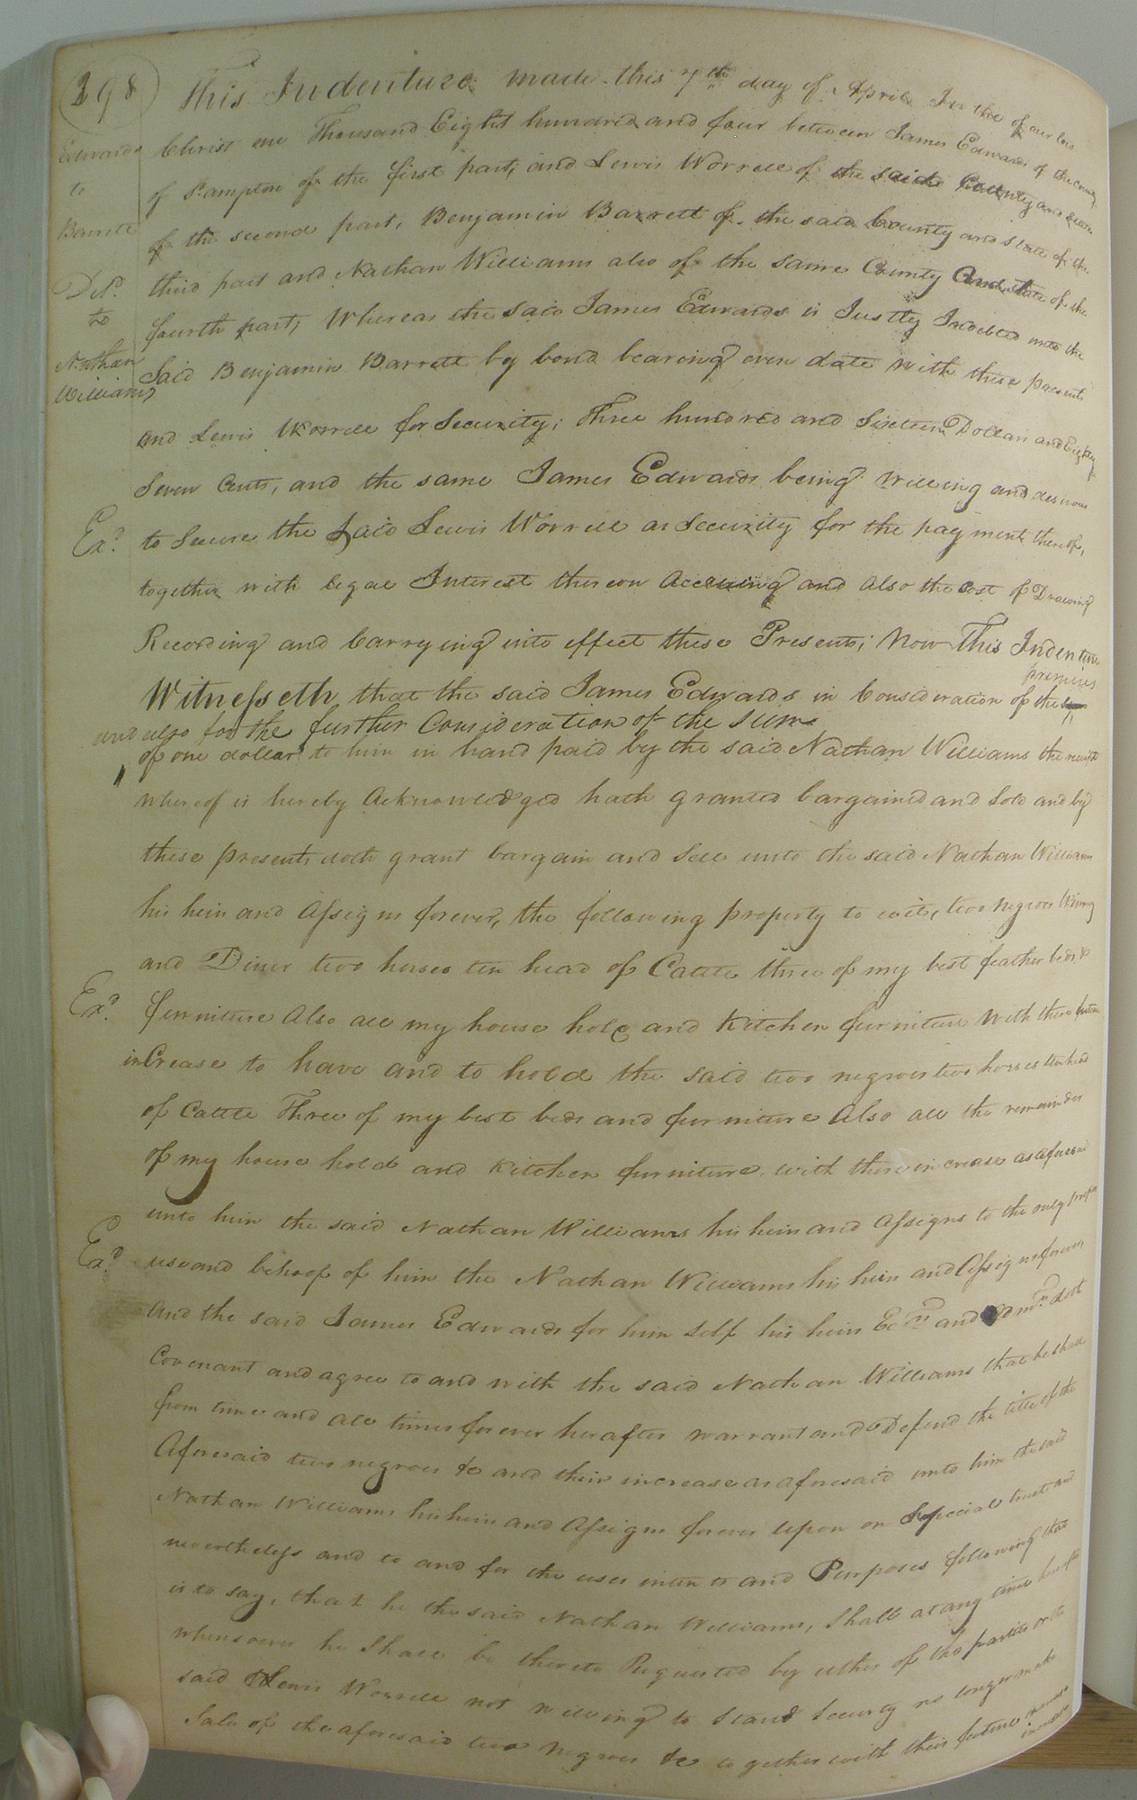 398
Edwards
to
Barrett
Deld.
to
Nathan
Williams
Exd.
Exd.
Exd.
This Indenture made this 7th day of April In the of our Lord
Christ one Thousand Eight hundred and four between James Edwards of the County
of S.ampton of the first part, and Lewis Worrell of the said County and
of the second part, Benjamin Barrett of the said County and State of the
third part and Nathan Williams also of the same County and State of the
fourth part, Whereas the said James Edwards is Justly Indebted unto the
Said Benjamin Barrett by bond bearing even date with these presents
and Lewis Worrell for Security; Three hundred and Sixteen Dollars and Eighty
Seven Cents, and the same James Edwards being Willing and desirous
to Secure the Said Lewis Worrell as Security for the payment thereof,
together with legal Interest thereon Accruing and also the Cost of Drawing
Recording and Carrying into effect these Presents; Now This Indenture
Witnesseth that the said James Edwards in Consideration of the premises
and also for the further Consideration of the Sum
of one dollar to him in hand paid by the said Nathan Williams the receipt
whereof is hereby Acknowledged hath granted bargained and Sold and by
these presents doth grant bargain and Sell unto the said Nathan Williams
his heirs and Assigns forever, the following property to wit, two negroes
and two horses ten head of Cattle three of my best feather beds &
furniture Also all my house hold and Kitchen furniture With there future
inCrease to have and to hold the said two negroes two horses ten head
of Cattle Three of my best beds and furniture Also all the remainder
of my house hold and Kitchen furniture with there increase as aforesaid
unto him the said Nathan Williams his heirs and Assigns to the only proper
use and behoof of him the Nathan Williams his heirs and Assigns forever
And the said James Edwards for him Self his heirs Ecrs and Admrs doth
Covenant and agree to and with the said Nathan Williams that he shall
from time and all times forever herafter warrant and Defend the title of the
Aforesaid two negroes &c and their increase as aforesaid unto him the said
Nathan Williams his heirs and Assigns forever Upon on Special trust and
nevertheless and to and for the uses intents and Purposes following that
is to say, that he the said Nathan Williams, Shall at any time
whensoever he Shall be thereto Requested by either of the parties or the
said Lewis Worrell not willing to Stand Security no longer make
Sale of the aforesaid two Negroes &c together with their future increase